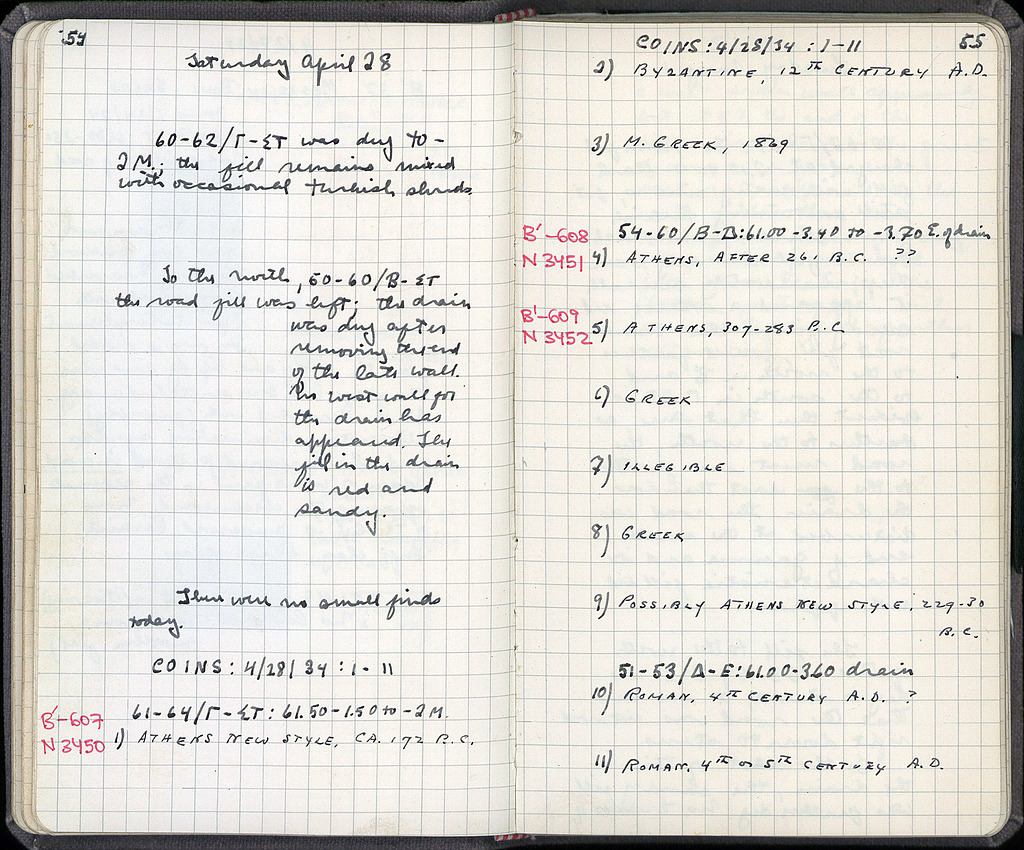 54
Saturday April 28
60-62/Γ-ΣΤ was dug to -
2 M.; the fill remains mixed
with occasional Turkish sherds.
To the north, 50-60/B-ΣΤ
the road fill was left; the drain
was dug after
removing the end
of the late wall.
The west wall for
the drain has
appeared. The
fill in the drain
is red and
sandy.
There were no small finds
today.
COINS: 4/28/34 : 1-11
61-64/Γ-ΣΤ: 61.50-1.50 to -2 M.
B'-607
N 3450
1) ATHENS NEW STYLE, CA. 172 B.C.
COINS: 4/28/34 : 1-11
55
2) BYZANTINE, 12TH CENTURY A.D.
3) M. GREEK, 1869
B'-608
54-60/B-Δ: 61.00 -3.40 to -3.70 E. of drain
N 3451
4) ATHENS, AFTER 261 B.C. ??
B'-609
N 3452
5) ATHENS, 307-283 B.C.
6) GREEK
7) ILLEGIBLE
8) GREEK
9) POSSIBLY ATHENS NEW STYLE, 229-30
B.C.
51-53/Δ-E: 61.00-3.60 drain
10) ROMAN, 4TH CENTURY A.D. ?
11) ROMAN, 4TH or 5TH CENTURY A.D.